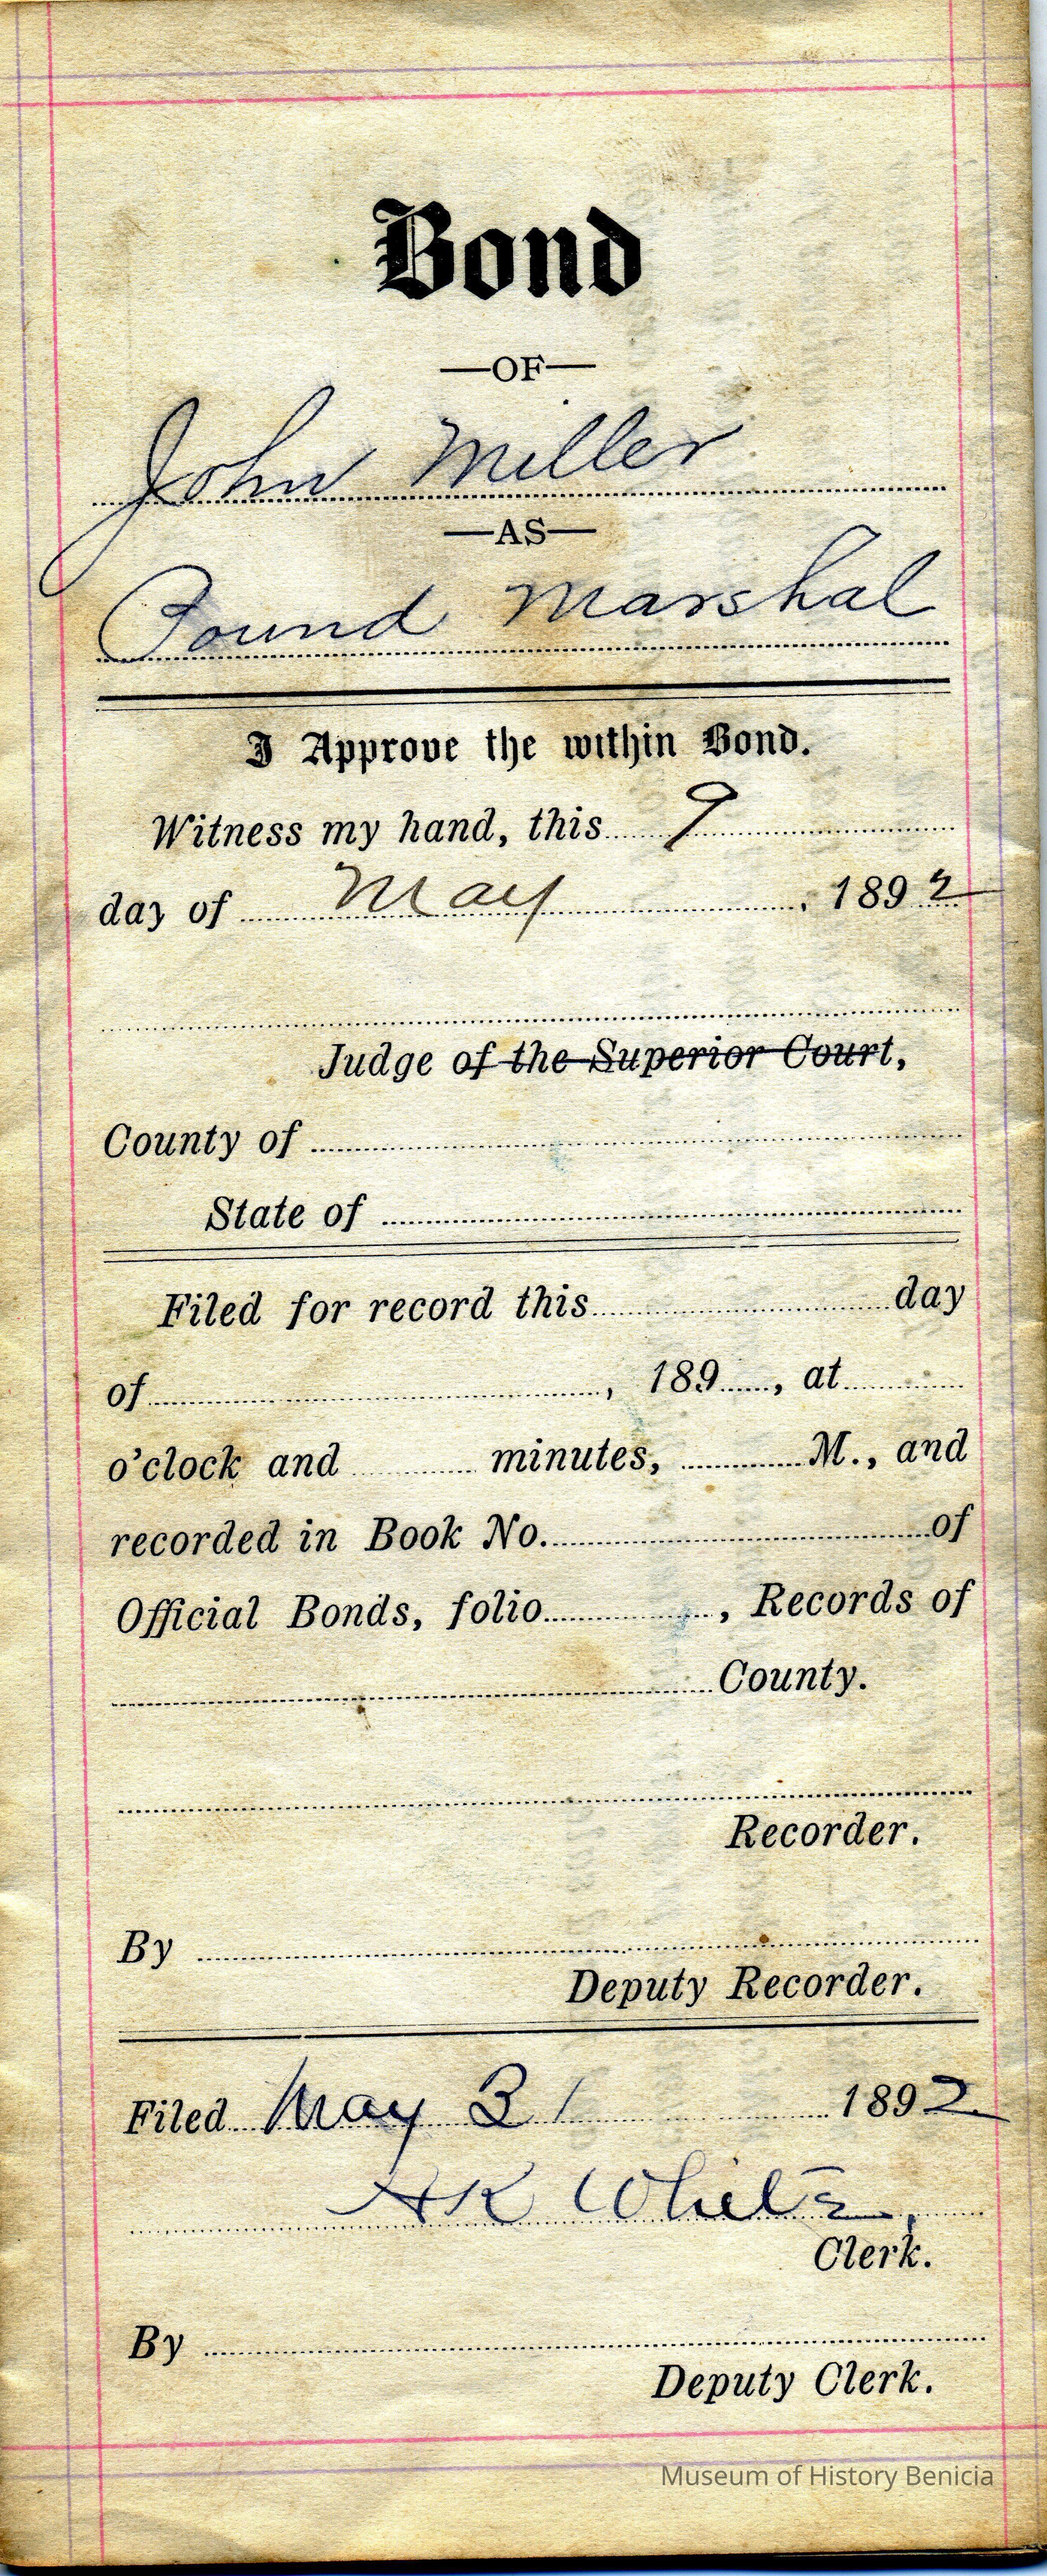 Bond
—OF—
John Miller
—AS—
Pound Marshal
I Approve the within Bond.
Witness my hand, this 9
day of May, 1892
Judge of the Superior Court,
County of
State of
Filed for record this day
of, 189, at
o'clock and minutes, M., and
recorded in Book No. of
Official Bonds, folio, Records of
County.
Recorder.
By
Deputy Recorder.
Filed May 31 1892
AK White,
Clerk.
By
Deputy Clerk.
Museum of History Benicia